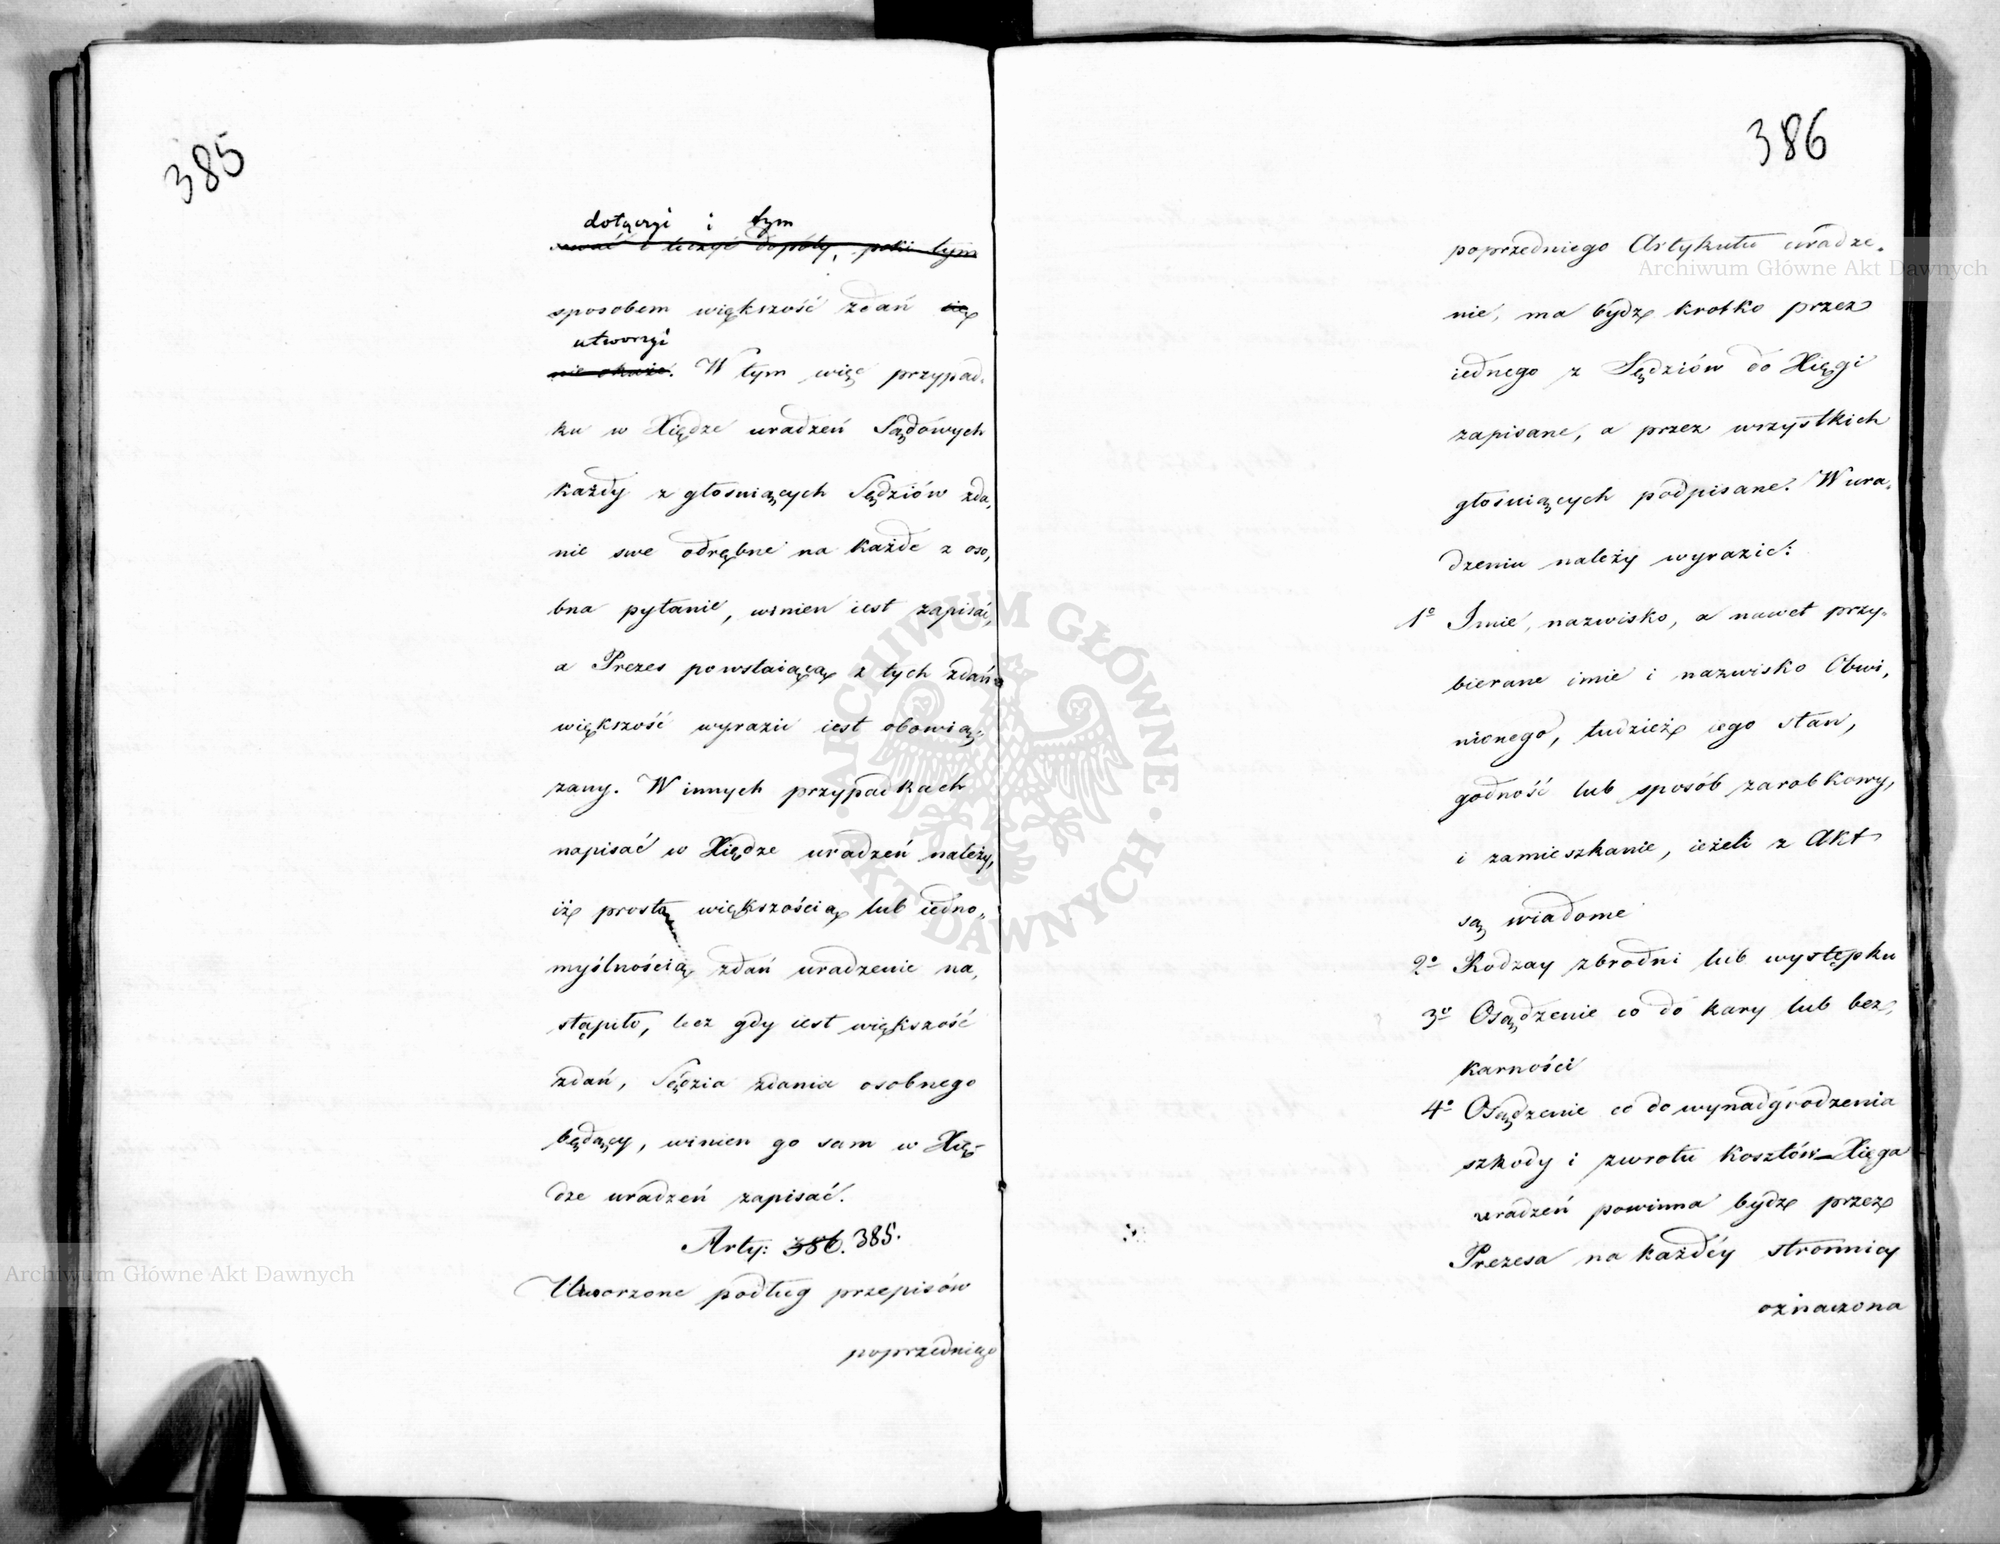 385
dołączyi i tym
sować i liczyć dopóty, póki tym
sposobem większość zdań się
utworzyi
nie okaże. W tym więc przypad-
ku w Xiędze uradzeń Sądówych
każdy z głosuiących Sędziów zda,
nie swe odrębne na każde z oso,
bna pytanie, winien iest zapisać,
a Prezes powstaiącą z tych zdań
większość wyrazić iest obowią,
zany. W innych przypadkach
napisać w Xiędze uradzeń należy,
iż prostą większością lub iedno,,
myślnością zdań uradzenie na,
stąpiło, lecz gdy iest większość
zdań, Sędzia zdania osobnego
będący, winien go sam w Xię-
dze uradzeń zapisać.
Arty: 386. 385.
Utworzone podług przepisów
poprzedniego
386
poprzedniego Artykułu uradze-
nie, ma bydź krotko przez
iednego z Sędziów do Xięgi
zapisane, a przez wszystkich
głosuiących podpisane. W ura-
dzeniu należy wyrazić:
1o Imie, nazwisko, a nawet przy-
bierane imie i nazwisko Obwi,
nionego, tudzież iego stan,
godność lub sposób zarobkowy,
i zamieszkanie, ieżeli z Akt
są wiadome
2o Rodzay zbrodni lub występku
3o Osądzenie co do kary lub bez,
karności
4o Osądzenie co do wynadgrodzenia
szkody i zwrotu kosztów – Xięga
uradzeń powinna bydź przez
Prezesa na każdéy stronnicy
oznaczona
Archiwum Główne Akt Dawnych
Archiwum Główne Akt Dawnych
ARCHIWUM GŁÓWNE · AKT DAWNYCH ·